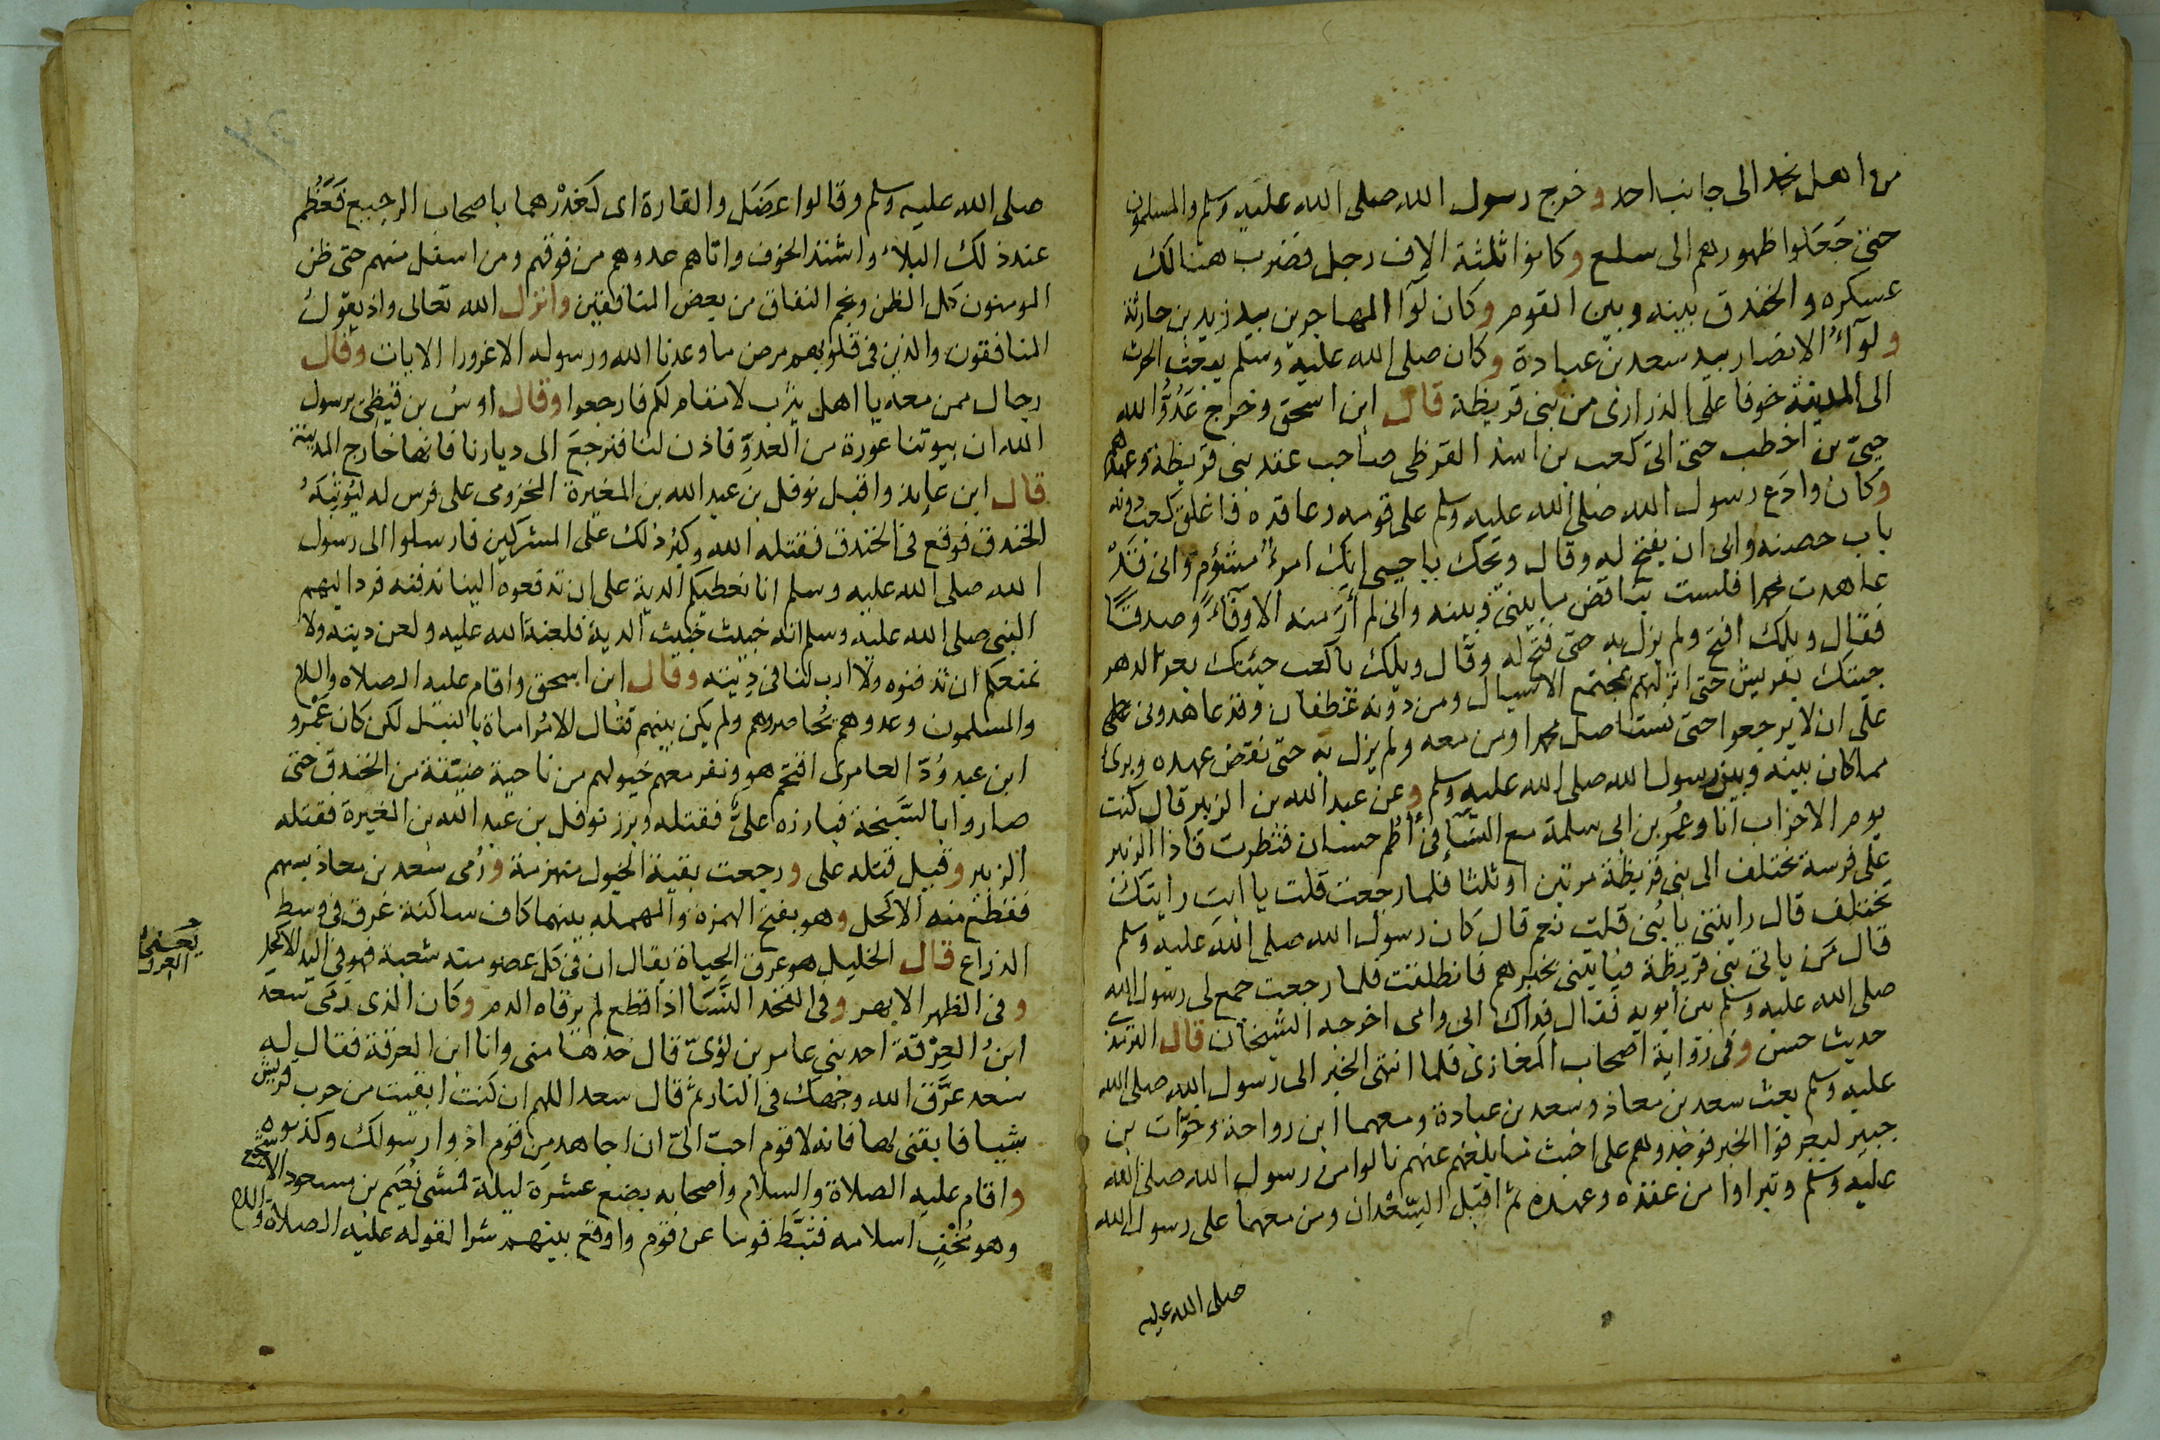 من اهل نجد الى جانب احد وخرج رسول الله صلى الله عليه وسلم والمسلمون
حتى جَعَلوا ظهورهم الى سلع وكانوا ثلثة الاف رجل فضرب هنالك
عسكره والخندق بينه وبين القوم وكان لوآ المهاجرين بيد زيد بن حارثة
ولوآءُ الانصار بيد سعد بن عبادة وكان صلى الله عليه وسلم يبعث الحرث
الى المدينة خوفا على الذرارى من بنى قريظة قال ابن اسحق وخرج عَدُوُّ الله
حيىّ بن اخطب حتى اتى كعب بن اسد القرظى صاحب عقد بنى قريظة وعهدهم
وكان وادَع رسول الله صلى الله عليه وسلم على قومه وعاقده فاغلق كعب دونه
باب حصنه وابى ان يفتح له وقال ويحك يا حيى انك امرءٌ مشؤم وانى قَدْ
عاهدت محمدا فلست بناقض ما بينى وبينه وانى لم أرَ منه الا وفاءً وصدقًا
فقال ويلك افتح ولم يزل به حتى فتح له وقال ويلك يا كعب جئتك بعز الدهر
جيتك بقريش حتى انزلتهم بمجتمع الاسيال ومن دونه غطفان وقد عاهدونى على
على ان لا يرجعوا حتى نستاصل محمدا ومن معه ولم يزل به حتى نقض عهده وبرئ
مما كان بينه وبين رسول الله صلى الله عليه وسلم وعن عبد الله بن الزبير قال كنت
يوم الاحزاب انا وعُمر بن ابى سلمة مع النسآ فى أُطُم حسان فنظرت فاذا الزبير
على فرسه يختلف الى بنى قريظة مرتين او ثلثا فلما رجعت قلت يا ابت رايتك
تختلف قال رايتنى يا بُنى قلت نعم قال كان رسول الله صلى الله عليه وسلم
قال مَن ياتى بنى قريظة فياتينى بخبرهم فانطلقت فلما رجعت جمع لى رسول الله
صلى الله عليه وسلم بين أبويه فقال فداك ابى وامى اخرجه الشيخان قال الترمذى
حديث حسن وفى رواية اصحاب المغازى فلما انتهى الخبر الى رسول الله صلى الله
عليه وسلم بعث سعد بن معاذ وسعد بن عبادة ومعهما ابن رواحة وخوّات بن
جبير ليعرفوا الخبر فوجدوهم على اخبث ما بلغهم عنهم نالوا من رسول الله صلى الله
عليه وسلم وتبراوا من عقده وعهده ثم اقبل السّعْدان ومن معهما على رسول الله
صلى الله عليه
صلى الله عليه وسلم وقالوا عَضَل والقارة اى كَغَدْرهما باصحاب الرجيع فَعَظُم
عند ذلك البلاءُ واشتد الخوف واتاهم عدوهم من فوقهم ومن اسفل منهم حتى ظن
المومنون كل الظن ونجم النفاق من بعض المنافقين وانزل الله تعالى واذ يقول
المنافقون والذين فى قلوبهم مرض ما وعدنا الله ورسوله الا غرورا الايات وقال
رجال ممن معه يا اهل يثرب لا مقام لكم فارجعوا وقال اوسُ بن قيظى يرسول
الله ان بيوتنا عورة من العدوّ قاذن لنا فنرجعَ الى ديارنا فانها خارج المدينة
قال ابن عايذ واقبل نوفل بن عبد الله بن المغيرة المخزومى على فرس له ليُوثِبَهُ
الخندق فوقع فى الخندق فقتله الله وكبُر ذلك على المشركين فارسلوا الى رسول
الله صلى الله عليه وسلم انا نعطيكم الدية على ان تدفعوه الينا ندفنه فرد اليهم
النبى صلى الله عليه وسلم انه خبيث خبيث الدية فلعنه الله عليه ولعن ديته ولا
نمنعكم ان تدفنوه ولا ارب لنا فى ديته وقال ابن اسحق واقام عليه الصلاه والسلام
والمسلمون وعدوهم يُحاصروهم ولم يكن بينهم قتال الا مُراماة بالنبل لكن كان عَمْرو
ابن عبد وُدّ العامرى اقتحم هو ونفر معهم خيولهم من ناحية ضيّقة من الخندق حتى
صاروا بالسَّبَخة فبارزه علىٌّ فقتله وبرز نوفل بن عبد الله بن المغيرة فقتله
الزبير وقيل قتله على ورجعت بقية الخيول منهزمة ورُمى سعد بن معاذ بسهم
فقطع منه الاكحل وهو بفتح الهمزة والمهمله بينهما كاف ساكنة عرق فى وسط
الذراع قال الخليل هو عرق الحياة يقال ان فى كل عضو منه شعبة فهو فى اليد الاكحل
وفى الظهر الابهر وفى الفخد النَّسَا اذا قطع لم يرقاه الدم وكان الذى رَمَى سعد
ابنُ العِرْقَة احد بنى عامر بن لؤىّ قال خذها منى وانا ابن العرقة فقال له
سعد عرَّق الله وجهك فى النار ثم قال سعد اللهم ان كنت ابقيت من حرب قريش
شيا فابقنى لها فانه لا قوم احبّ الىّ ان اجاهد من قوم اذوا رسولك وكذبوه
واقام عليه الصلاة والسلام واصحابه بضع عشرة ليلة فمشى نُعَيم بن مسعود الاشجعى
وهو مُخْفٍ اسلامه فثبَّط قوما عن قوم واوقع بينهم شرا لقوله عليه الصلاة والسلام